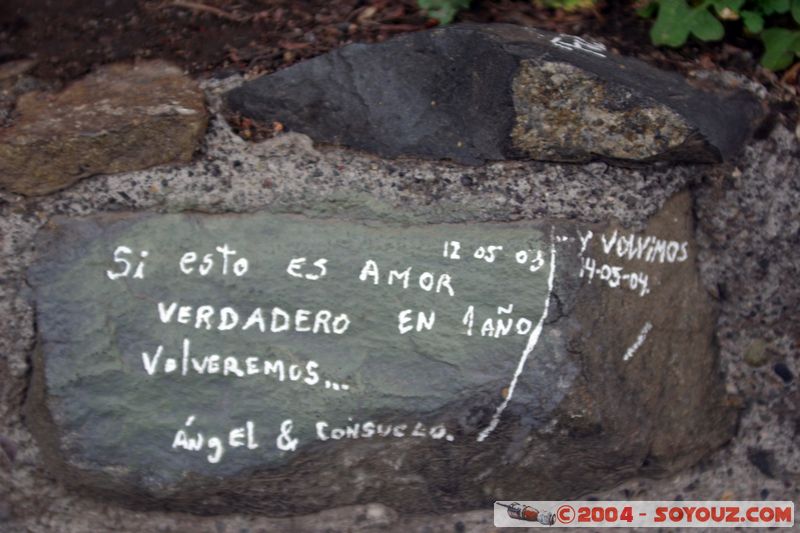 12 05 03
Si esto es AMOR
VERDADERO EN 1 AÑO
VolVEREMOS...
ÁngEl & CONSUELO.
... Y VOLVIMOS
14-05-04.
©2004 - SOYOUZ.COM